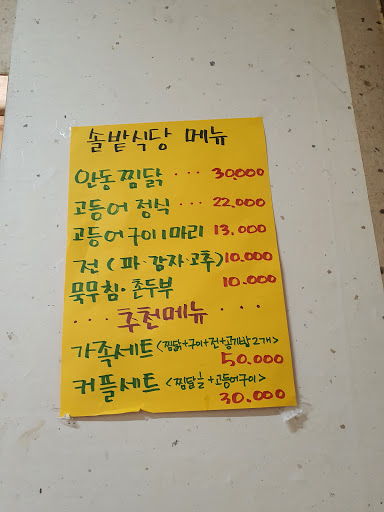 솔밭식당 메뉴
안동찜닭 ··· 30,000
고등어 정식 ··· 22,000
고등어구이 1마리 13.000
전 (파·감자·고추) 10.000
묵무침·촌두부 10.000
··· 추천메뉴 ···
가족세트 <찜닭+구이+전+공기밥2개>
50.000
커플세트 <찜닭½+고등어구이>
30.000